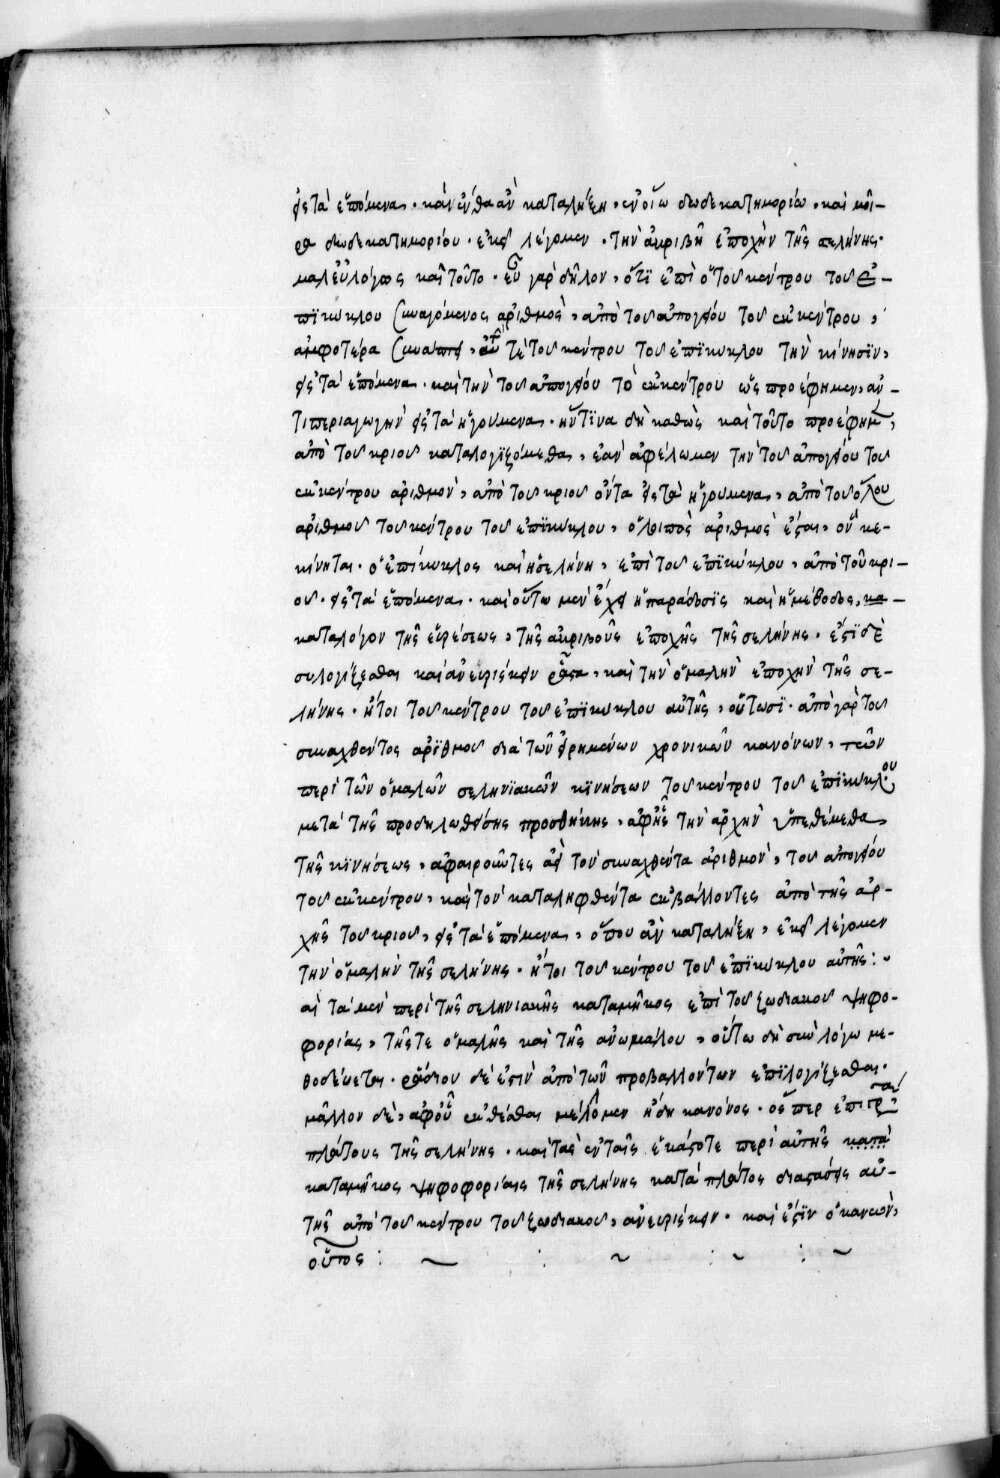 εἰς τὰ ἑπόμενα · κἀν ἔνθα ἂν καταλήξη, ἐν οἵω δωδεκατημορίω, καὶ μοί-
ρα δωδεκατημορίου · ἐκεῖ λέγομεν · τὴν ἀκριβῆ ἐποχὴν τῆς σελήνης ·
μαλ' εὐλόγως καὶ τοῦτο · εὖ γὰρ δῆλον, ὅτι ἐπὶ ὁ τοῦ κέντρου τοῦ ἐ-
πικύκλου συναγόμενος ἀριθμὸς, ἀπὸ τοῦ ἀπογείου τοῦ ἐκκέντρου,
ἀμφοτέρα τε τοῦ κέντρου τοῦ ἐπικύκλου τὴν κίνησιν,
εἰς τὰ ἑπόμενα · καὶ τὴν τοῦ ἀπογείου τοῦ ἐκκέντρου ὡς προέφημεν, ἀν-
τιπεριαγωγὴν εἰς τὰ ἡγούμενα · ἥντινα δὴ καθὼς καὶ τοῦτο προέφημεν,
ἀπὸ τοῦ κριοῦ καταλογιζόμεθα, ἐὰν ἀφέλωμεν τὴν τοῦ ἀπογείου τοῦ
ἐκκέντρου ἀριθμὸν, ἀπὸ τοῦ κριοῦ ὄντα εἰς τὰ ἡγούμενα, ἀπὸ τοῦ ὅλου
ἀριθμοῦ τοῦ κέντρου τοῦ ἐπικύκλου, ὁ λοιπὸς ἀριθμὸς ἔσται, οὗ κε-
κίνηται · ὁ ἐπίκυκλος καὶ ἡ σελήνη, ἐπὶ τοῦ ἐπικύκλου, ἀπὸ τοῦ κρι-
οῦ · εἰς τὰ ἑπόμενα · καὶ οὕτω μὲν ἔχει ἡ παράδοσις καὶ ἡ μέθοδος, κα-
καταλόγον τῆς εὑρέσεως, τῆς ἀκριβοῦς ἐποχῆς τῆς σελήνης · ἔστι δὲ
συλογίζεσθαι καὶ ἀνευρίσκειν ῥᾶστα, καὶ τὴν ὁμαλὴν ἐποχὴν τῆς σε-
λήνης · ἤτοι τοῦ κέντρου τοῦ ἐπικύκλου αὐτῆς, οὕτωσι · ἀπὸ γὰρ τοῦ
συναχθέντος ἀριθμοῦ διὰ τῶν εἰρημένων χρονικῶν κανόνων, τῶν
περὶ τῶν ὁμαλῶν σεληνιακῶν κινήσεων τοῦ κέντρου τοῦ ἐπικύκλου
μετὰ τῆς προδηλωθείσης προσθήκης, ἀφ' ἧς τὴν ἀρχὴν ὑπεθέμεθα,
τῆς κινήσεως, ἀφαιροῦντες ἀεὶ τὸν συναχθέντα ἀριθμὸν, τοῦ ἀπογείου
τοῦ ἐκκέντρου, καὶ τὸν καταληφθέντα ἐκβάλλοντες ἀπὸ τῆς ἀρ-
χῆς τοῦ κριοῦ, εἰς τὰ ἑπόμενα, ὅπου ἂν καταλήξη, ἐκεῖ λέγομεν
τὴν ὁμαλὴν τῆς σελήνης · ἤτοι τοῦ κέντρου τοῦ ἐπικύκλου αὐτῆς : ~
αἱ τὰ μὲν περὶ τῆς σεληνιακῆς κατὰ μῆκος ἐπὶ τοῦ ζωδιακοῦ ψηφο-
φορίας, τῆς τε ὁμαλῆς καὶ τῆς ἀνωμάλου, οὕτω δὴ σὺν λόγω με-
θοδεύεται · ῥάδιον δέ ἐστιν ἀπὸ τῶν προβαλλόντων ἐπιλογίζεσθαι ·
μᾶλλον δὲ, ἀφ' οὗ ἐκθέσθαι μέλλομεν ἤδη κανόνος · ὅσπερ ἐπὶ τοῦ
πλάτους τῆς σελήνης · καὶ τὰς ἐν ταῖς ἑκάστοτε περὶ αὐτῆς κατὰ
κατὰ μῆκος ψηφοφορίαις τῆς σελήνης κατὰ πλάτος διαστάσεις αὐ-
τῆς ἀπὸ τοῦ κέντρου τοῦ ζωδιακοῦ, ἀνευρίσκειν · καὶ ἔστιν ὁ κανὼν,
οὗτος : ~ : ~ : ~ : ~